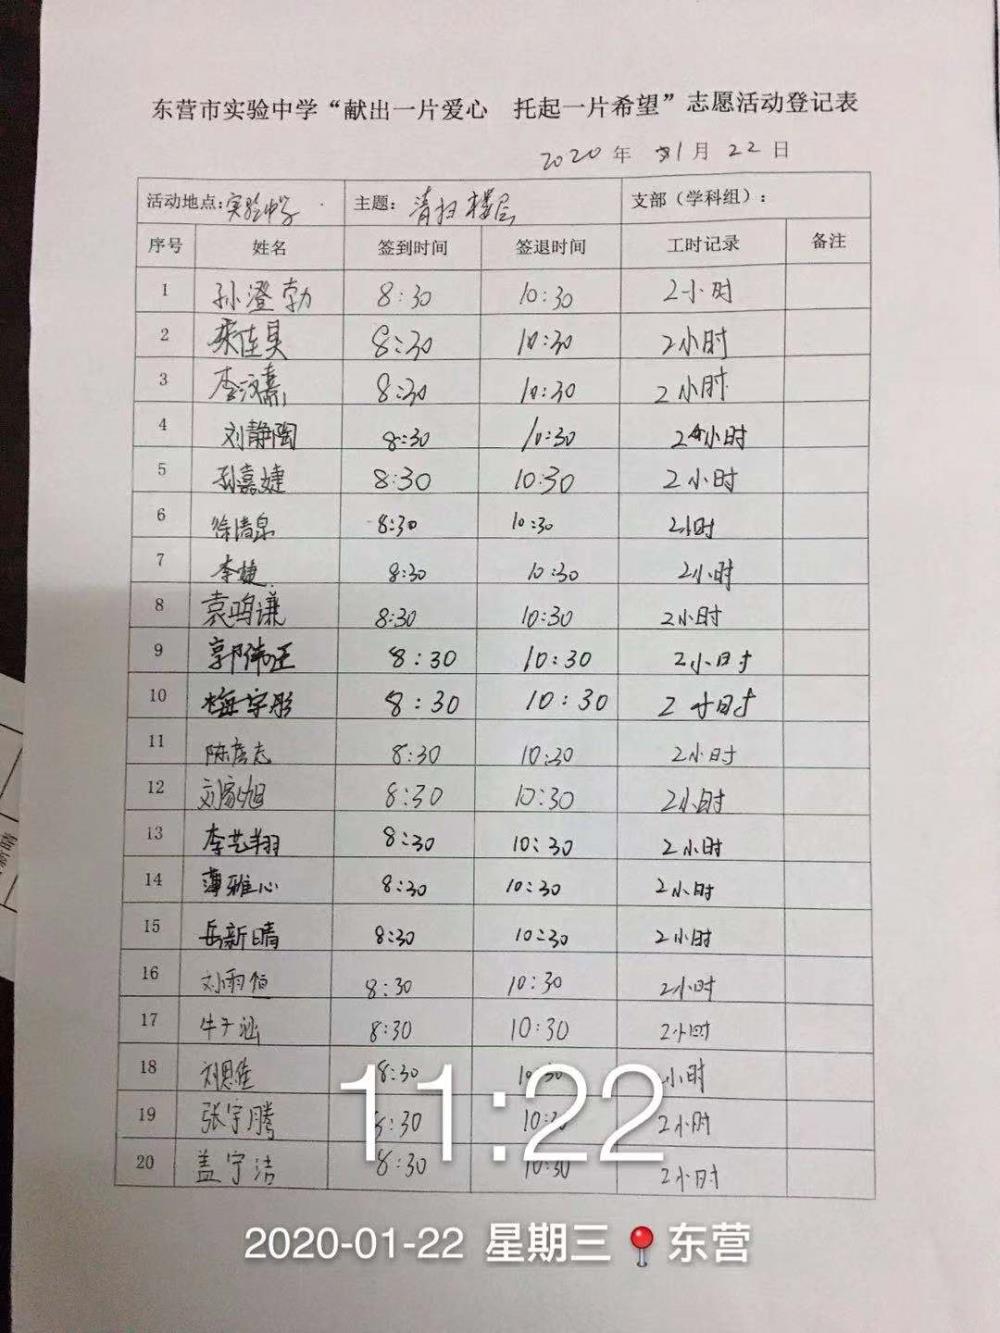 东营市实验中学“献出一片爱心 托起一片希望”志愿活动登记表
2020年 1月22日
活动地点:实验中学 主题:清扫楼层 支部(学科组):
序号 姓名 签到时间 签退时间 工时记录 备注
1 孙澄勃 8:30 10:30 2小时
2 佳昊 8:30 10:30 2小时
3 李 8:30 10:30 2小时
4 刘静陶 8:30 10:30 2小时
5 孙嘉婕 8:30 10:30 2小时
6 徐清泉 8:30 10:30 2小时
7 李婕 8:30 10:30 2小时
8 袁鸣谦 8:30 10:30 2小时
9 郭伟 8:30 10:30 2小时
10 梅宇彤 8:30 10:30 2小时
11 陈彦志 8:30 10:30 2小时
12 刘家旭 8:30 10:30 2小时
13 李艺翔 8:30 10:30 2小时
14 薄雅心 8:30 10:30 2小时
15 岳新晴 8:30 10:30 2小时
16 刘雨恒 8:30 10:30 2小时
17 牛子涵 8:30 10:30 2小时
18 刘思佳 8:30 10:30 小时
19 张宇腾 8:30 10:3 2小时
20 盖宁洁 8:30 10:30 2小时
11:22
2020-01-22 星期三 东营